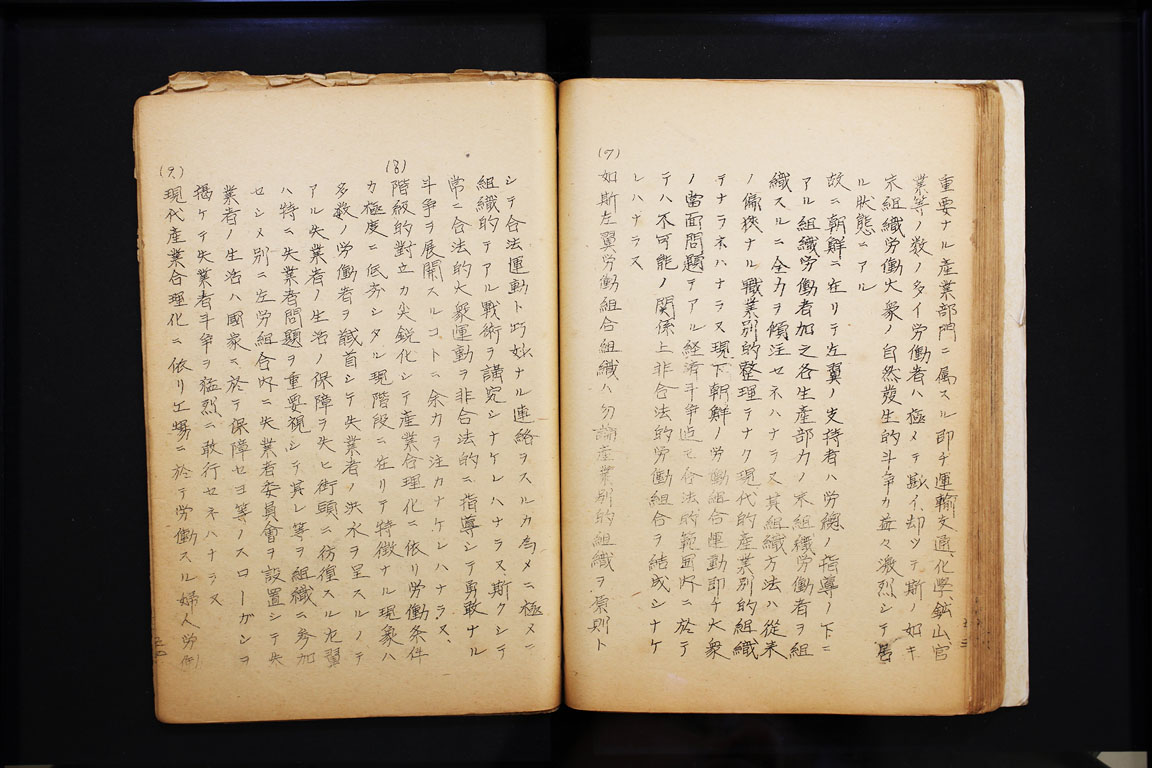 重要ナル産業部門ニ属スル即チ運輸交通、化学、鉱山、官
業等ノ数ノ多イ労働者ハ極メテ尠イ、却ツテ斯ノ如キ
未組織労働大衆ノ自然発生的斗争カ益々激烈シテ居
ル状態ニアル
故ニ朝鮮ニ在リテ左翼ノ支持者ハ労総ノ指導ノ下ニ
アル組織労働者加之各生産部カノ未組織労働者ヲ組
織スルニ全力ヲ傾注セネハナラス其組織方法ハ従来
ノ偏狭ナル職業別的整理テナク現代的産業別的組織
テナラネハナラス現下朝鮮ノ労働組合運動即チ大衆
ノ當面問題テアル経済斗争迄モ合法的範囲内ニ於テ
テハ不可能ノ関係上非合法的労働組合ヲ結成シナケ
レハナラス
(7)
如斯左翼労働組合組織ハ勿論産業別的組織ヲ原則ト
シテ合法運動ト巧妙ナル連絡ヲスルカ為メニ極メテ
組織的テアル戦術ヲ講究シナケレハナラス斯クシテ
常ニ合法的大衆運動ヲ非合法的ニ指導シテ勇敢ナル
斗争ヲ展開スルコトニ余力ヲ注カナケレハナラス、
(8)
階級的對立カ尖鋭化シテ産業合理化ニ依リ労働条件
カ極度ニ低劣シタル現階段ニ在リテ特徴ナル現象ハ
多数ノ労働者ヲ馘首シテ失業者ノ洪水ヲ呈スルノテ
アル失業者ノ生活ノ保障ヲ失ヒ街頭ニ彷徨スル左翼
ハ特ニ失業者問題ヲ重要視シテ其レ等ヲ組織ニ参加
セシメ別ニ左労組合内ニ失業者委員會ヲ設置シテ失
業者ノ生活ハ國家ニ於テ保障セヨ等ノスローガンヲ
揭ケテ失業者斗争ヲ猛烈ニ敢行セネハナラス
(9)
現代産業合理化ニ依リ工場ニ於テ労働スル婦人労働